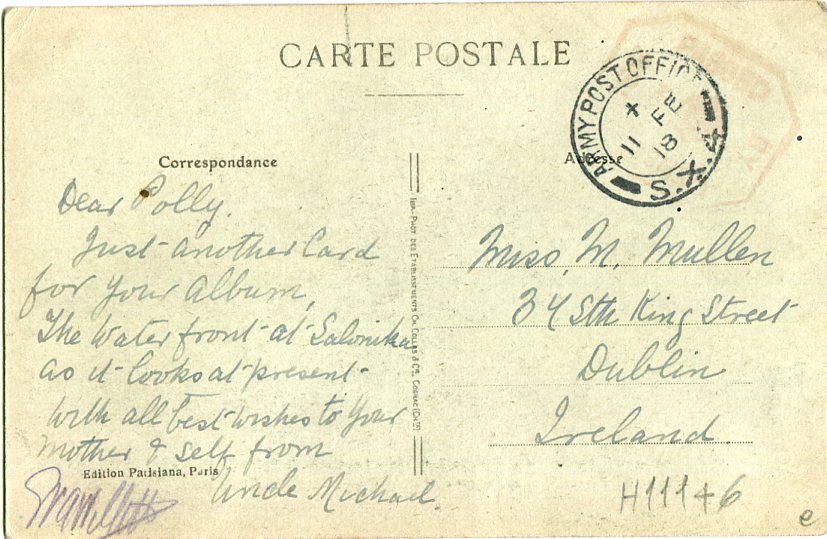 CARTE POSTALE
ARMY POST OFFICE
11 X
18 FE
S.X.4
Correspondance
Dear Polly.
Just another Card
for your album,
The Water front at Salonika
as it looks at present
with all best wishes to your
Mother & self from
Uncle Michael.
Edition Parisiana, Paris
IMP.-PHOT DES ETABLISSEMENTS CH. COLLAS & Cie, COGNAC (Chte)
Adresse
Miss, M, Mullen
34 Sth King Street
Dublin
Ireland.
H11146
e